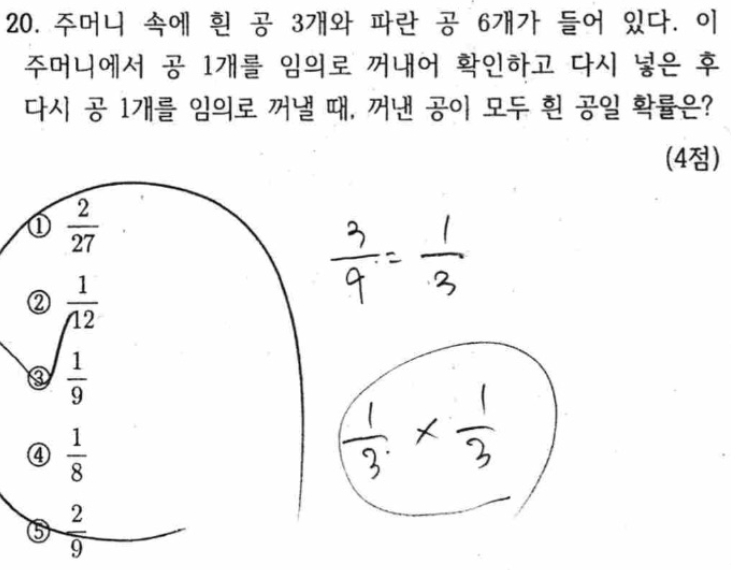 20. 주머니 속에 흰 공 3개와 파란 공 6개가 들어 있다. 이
주머니에서 공 1개를 임의로 꺼내어 확인하고 다시 넣은 후
다시 공 1개를 임의로 꺼낼 때, 꺼낸 공이 모두 흰 공일 확률은?
(4점)
① 2/27
② 1/12
③ 1/9
④ 1/8
⑤ 2/9
3/9 = 1/3
1/3 × 1/3